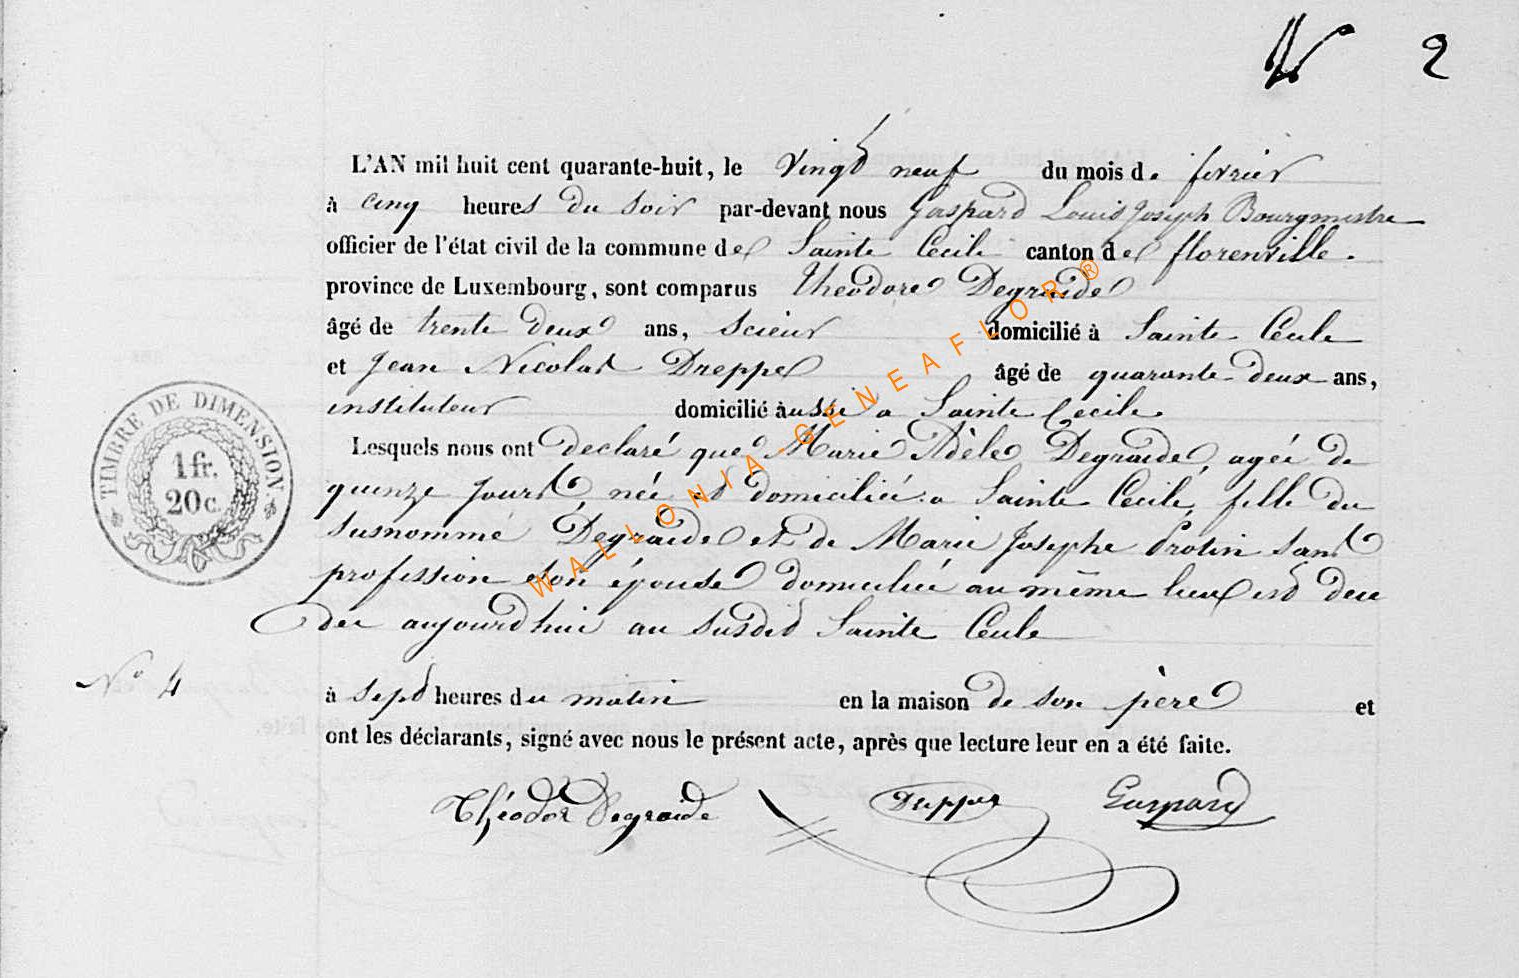 2
L'AN mil huit cent quarante-huit, le vingt neuf du mois de fevrier
à cinq heures du soir par-devant nous Gaspard Louis Joseph Bourgmestre
officier de l'état civil de la commune de Sainte Cecile canton de florenville.
province de Luxembourg, sont comparus Theodore Degraide
âgé de trente deux ans, scieur domicilié à Sainte Cecile
et Jean Nicolas Dreppe âgé de quarante deux ans,
instituteur domicilié aussi a Sainte Cecile.
Lesquels nous ont declaré que Marie Adèle Degraide, agée de
quinze jours née et domiciliée a Sainte Cecile, fille du
susnommé Degraide et de Marie Josephe Protin sans
profession son épouse domiciliée au même lieu est decedée
aujourd'hui au susdit Sainte Cecile
No 4
à sept heures du matin en la maison de son père et
ont les déclarants, signé avec nous le présent acte, après que lecture leur en a été faite.
Théodor Degraide Dreppe Gaspard
TIMBRE DE DIMENSION
1 fr.
20 c.
WALLONIA-GENEAFLOR®